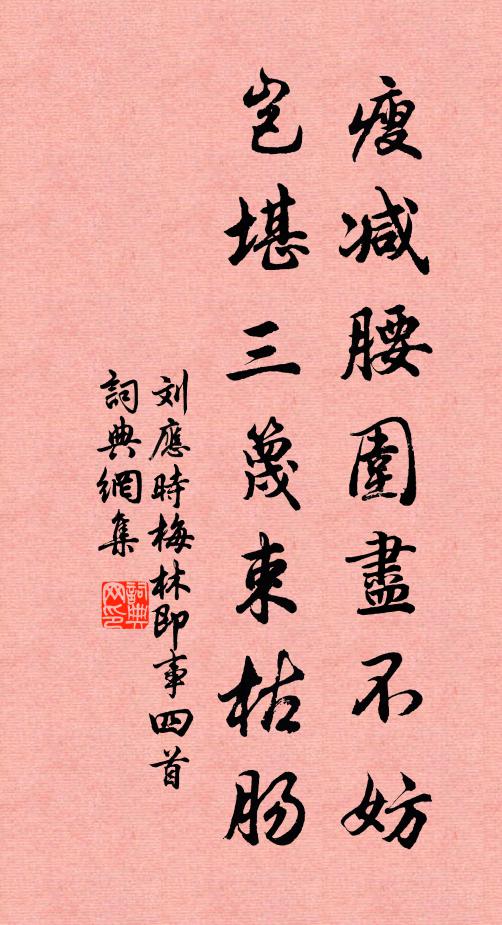 瘦减腰圍盡不妨
岂堪三篾束枯肠
刘應時梅林即事四首
詞典網集
詞典网印